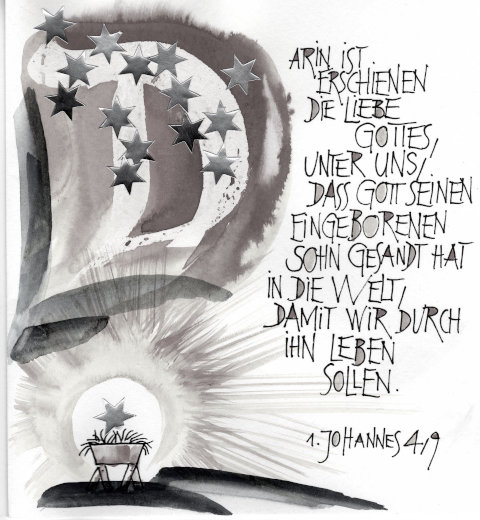 DARIN IST
ERSCHIENEN
DIE LIEBE
GOTTES,
UNTER UNS,
DASS GOTT SEINEN
EINGEBORENEN
SOHN GESANDT HAT
IN DIE WELT,
DAMIT WIR DURCH
IHN LEBEN
SOLLEN.
1. JOHANNES 4,9